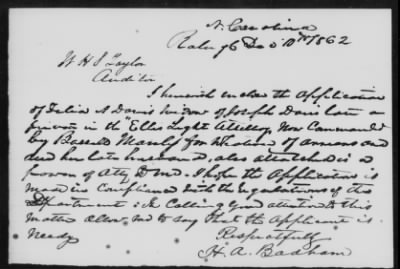 N. Carolina
Raleigh Dec 10th 1862
W H S Taylor
Auditor
I herewith enclose the Application
of Felia A Davis widow of Joseph Davis late a
private in the "Ellis Light Artillery, Now Command
by Manly for balance of arrears and
due her late husband, also attached is a
power of Atty &. I hope the Application is
made in compliance with the regulations of the
Department; In Calling your attention to this
matter allow me to say that the Applicant is
needy
Respectfully
H. A. Badham